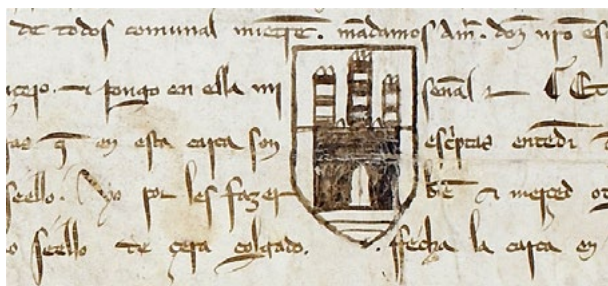 de todos comunal mietþe. mãdamos Am̃. doz nr̃o es
ncejo. et pongo en ella mi señal et Et
as q̃ en esta carta son esc̃ptas entedi
seello. por les fazer biẽ et merced
seello de çera colgado. fecha la carta en